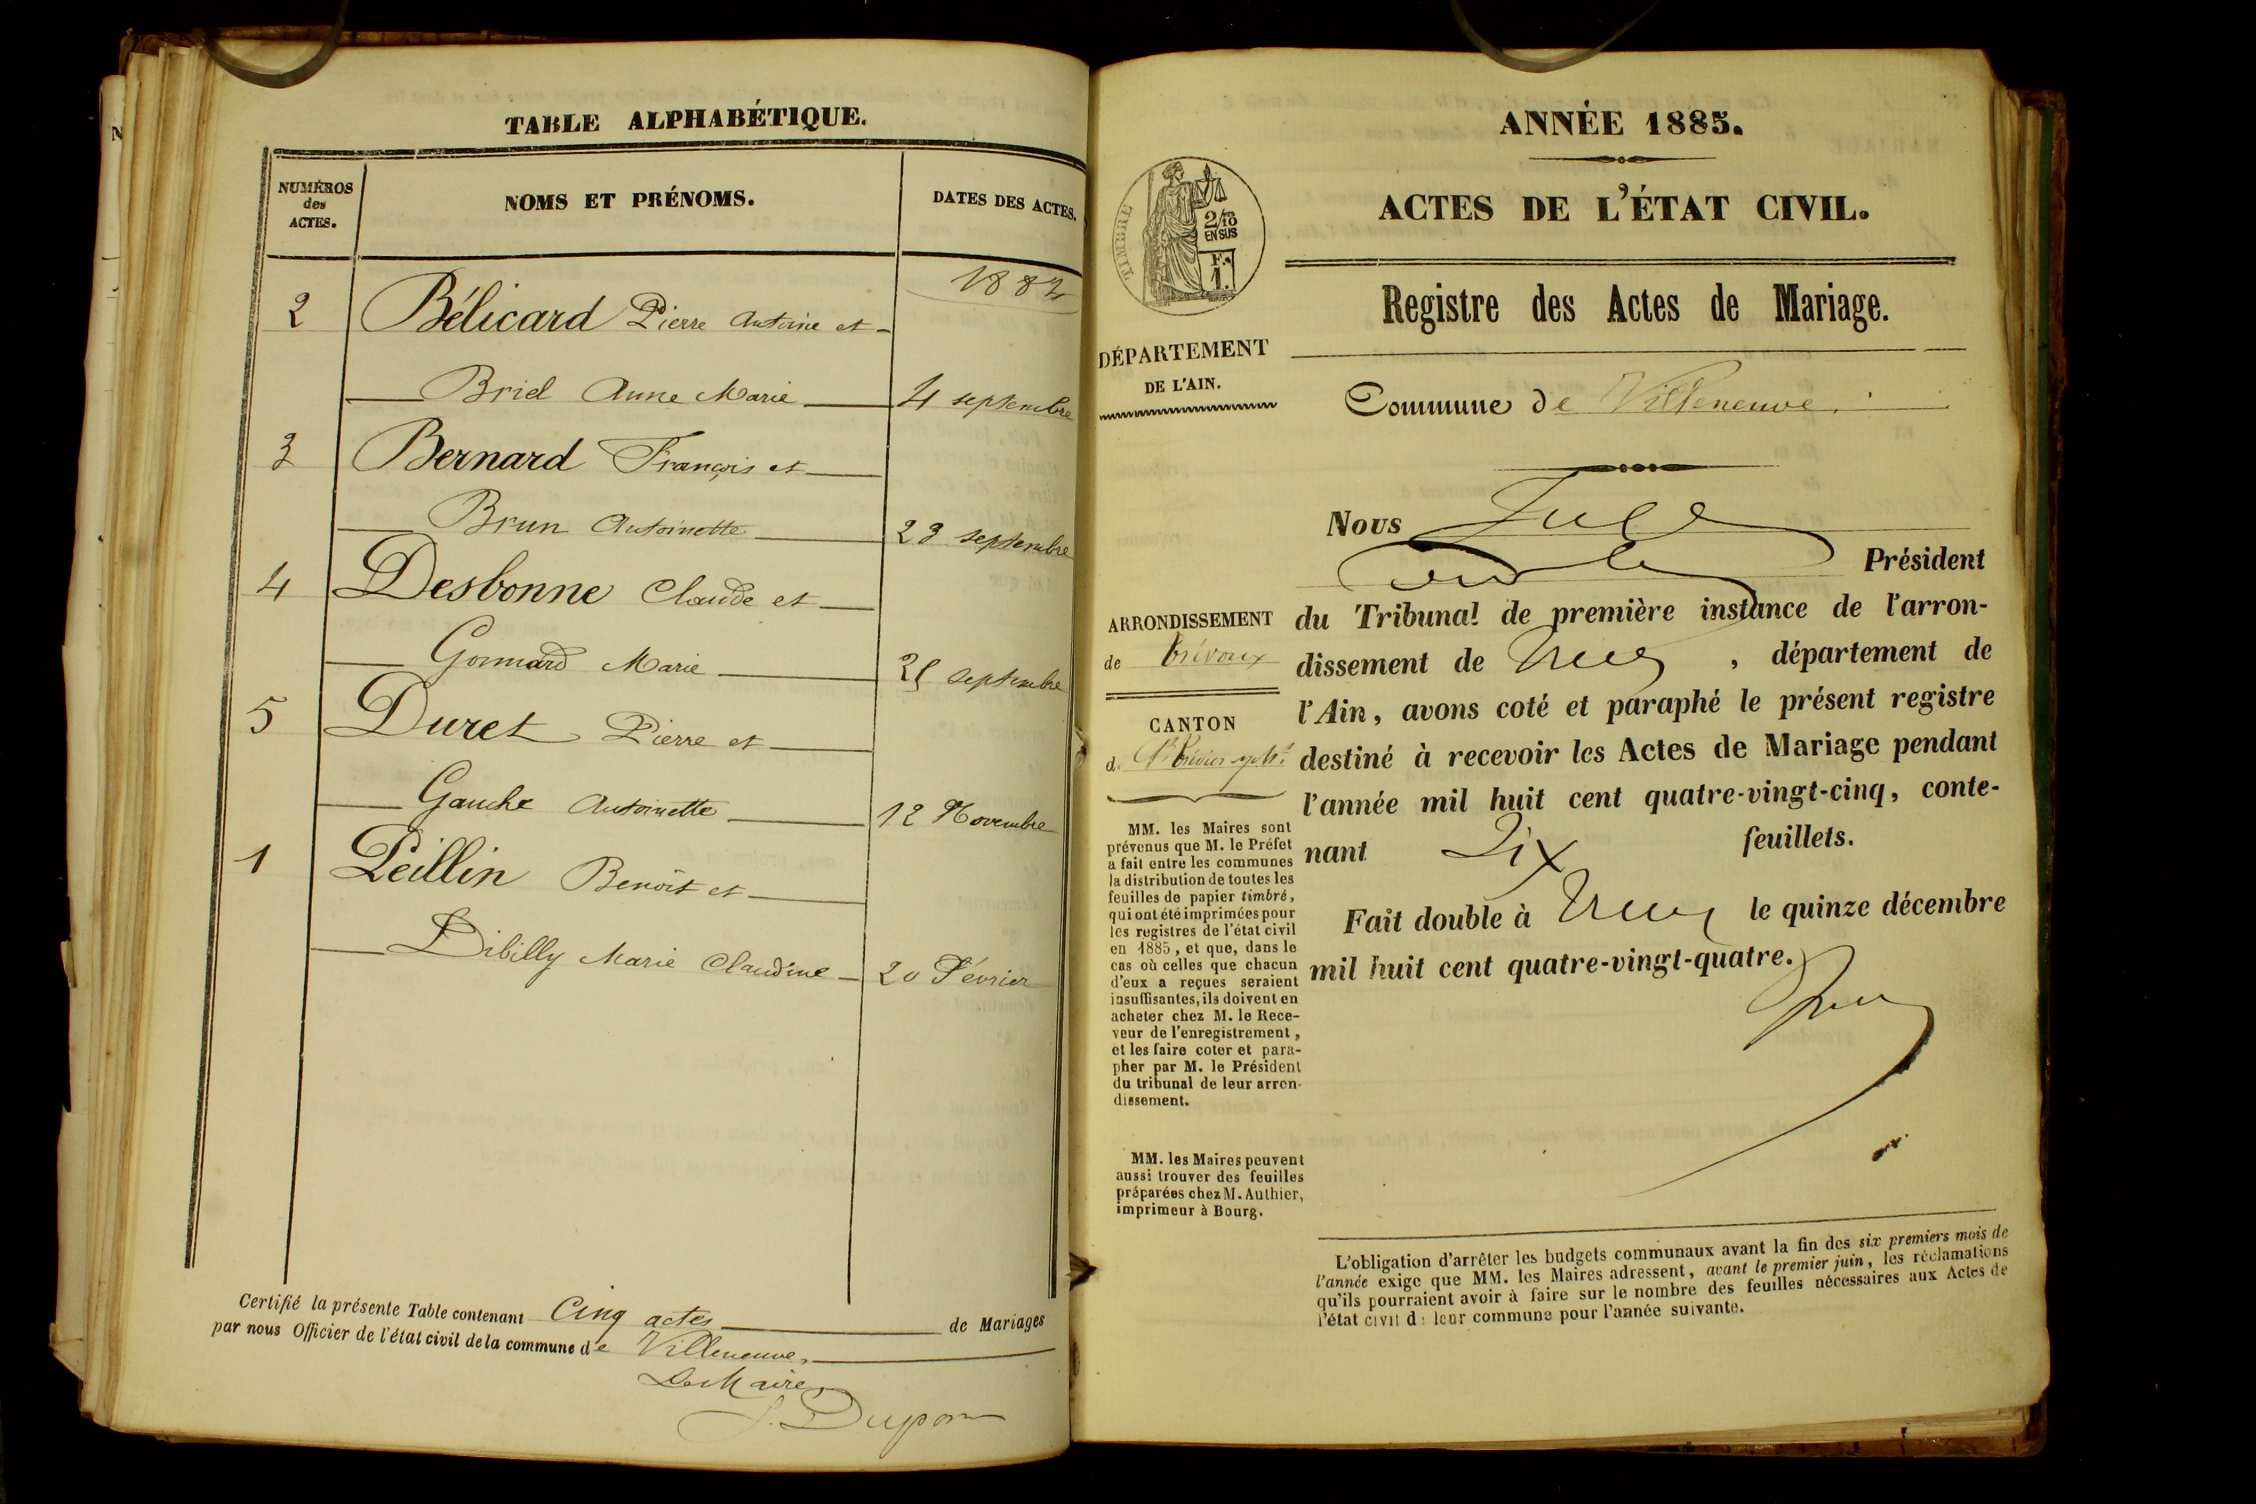 TABLE ALPHABÉTIQUE.
NUMÉROS
des
ACTES.
NOMS ET PRÉNOMS.
DATES DES ACTES.
1884
2 Bélicard Pierre Antoine et
Briel Anne Marie 4 septembre
3 Bernard François et
Brun Antoinette 23 septembre
4 Desbonne Claude et
Gonnard Marie 25 septembre
5 Duret Pierre et
Gauche Antoinette 12 Novembre
1 Peillin Benoît et
Dibilly Marie Claudine 20 Février
Certifié la présente Table contenant Cinq actes de Mariages
par nous Officier de l'état civil de la commune de Villeneuve.
Le Maire
ANNÉE 1885.
ACTES DE L'ÉTAT CIVIL.
TIMBRE
2/10
EN SUS
F.
1.
Registre des Actes de Mariage.
DÉPARTEMENT
DE L'AIN.
Commune de Villeneuve.
ARRONDISSEMENT
de Trévoux
CANTON
MM. les Maires sont
prévenus que M. le Préfet
a fait entre les communes
la distribution de toutes les
feuilles de papier timbré,
qui ont été imprimées pour
les registres de l'état civil
en 1885, et que, dans le
cas où celles que chacun
d'eux a reçues seraient
insuffisantes, ils doivent en
acheter chez M. le Rece-
veur de l'enregistrement,
et les faire coter et para-
pher par M. le Président
du tribunal de leur arron-
dissement.
MM. les Maires peuvent
aussi trouver des feuilles
préparées chez M. Authier,
imprimeur à Bourg.
Nous
Président
du Tribunal de première instance de l'arron-
dissement de , département de
l'Ain, avons coté et paraphé le présent registre
destiné à recevoir les Actes de Mariage pendant
l'année mil huit cent quatre-vingt-cinq, conte-
nant feuillets.
Fait double à le quinze décembre
mil huit cent quatre-vingt-quatre.
L'obligation d'arrêter les budgets communaux avant la fin des six premiers mois de
l'année exige que MM. les Maires adressent, avant le premier juin, les réclamations
qu'ils pourraient avoir à faire sur le nombre des feuilles nécessaires aux Actes de
l'état civil de leur commune pour l'année suivante.